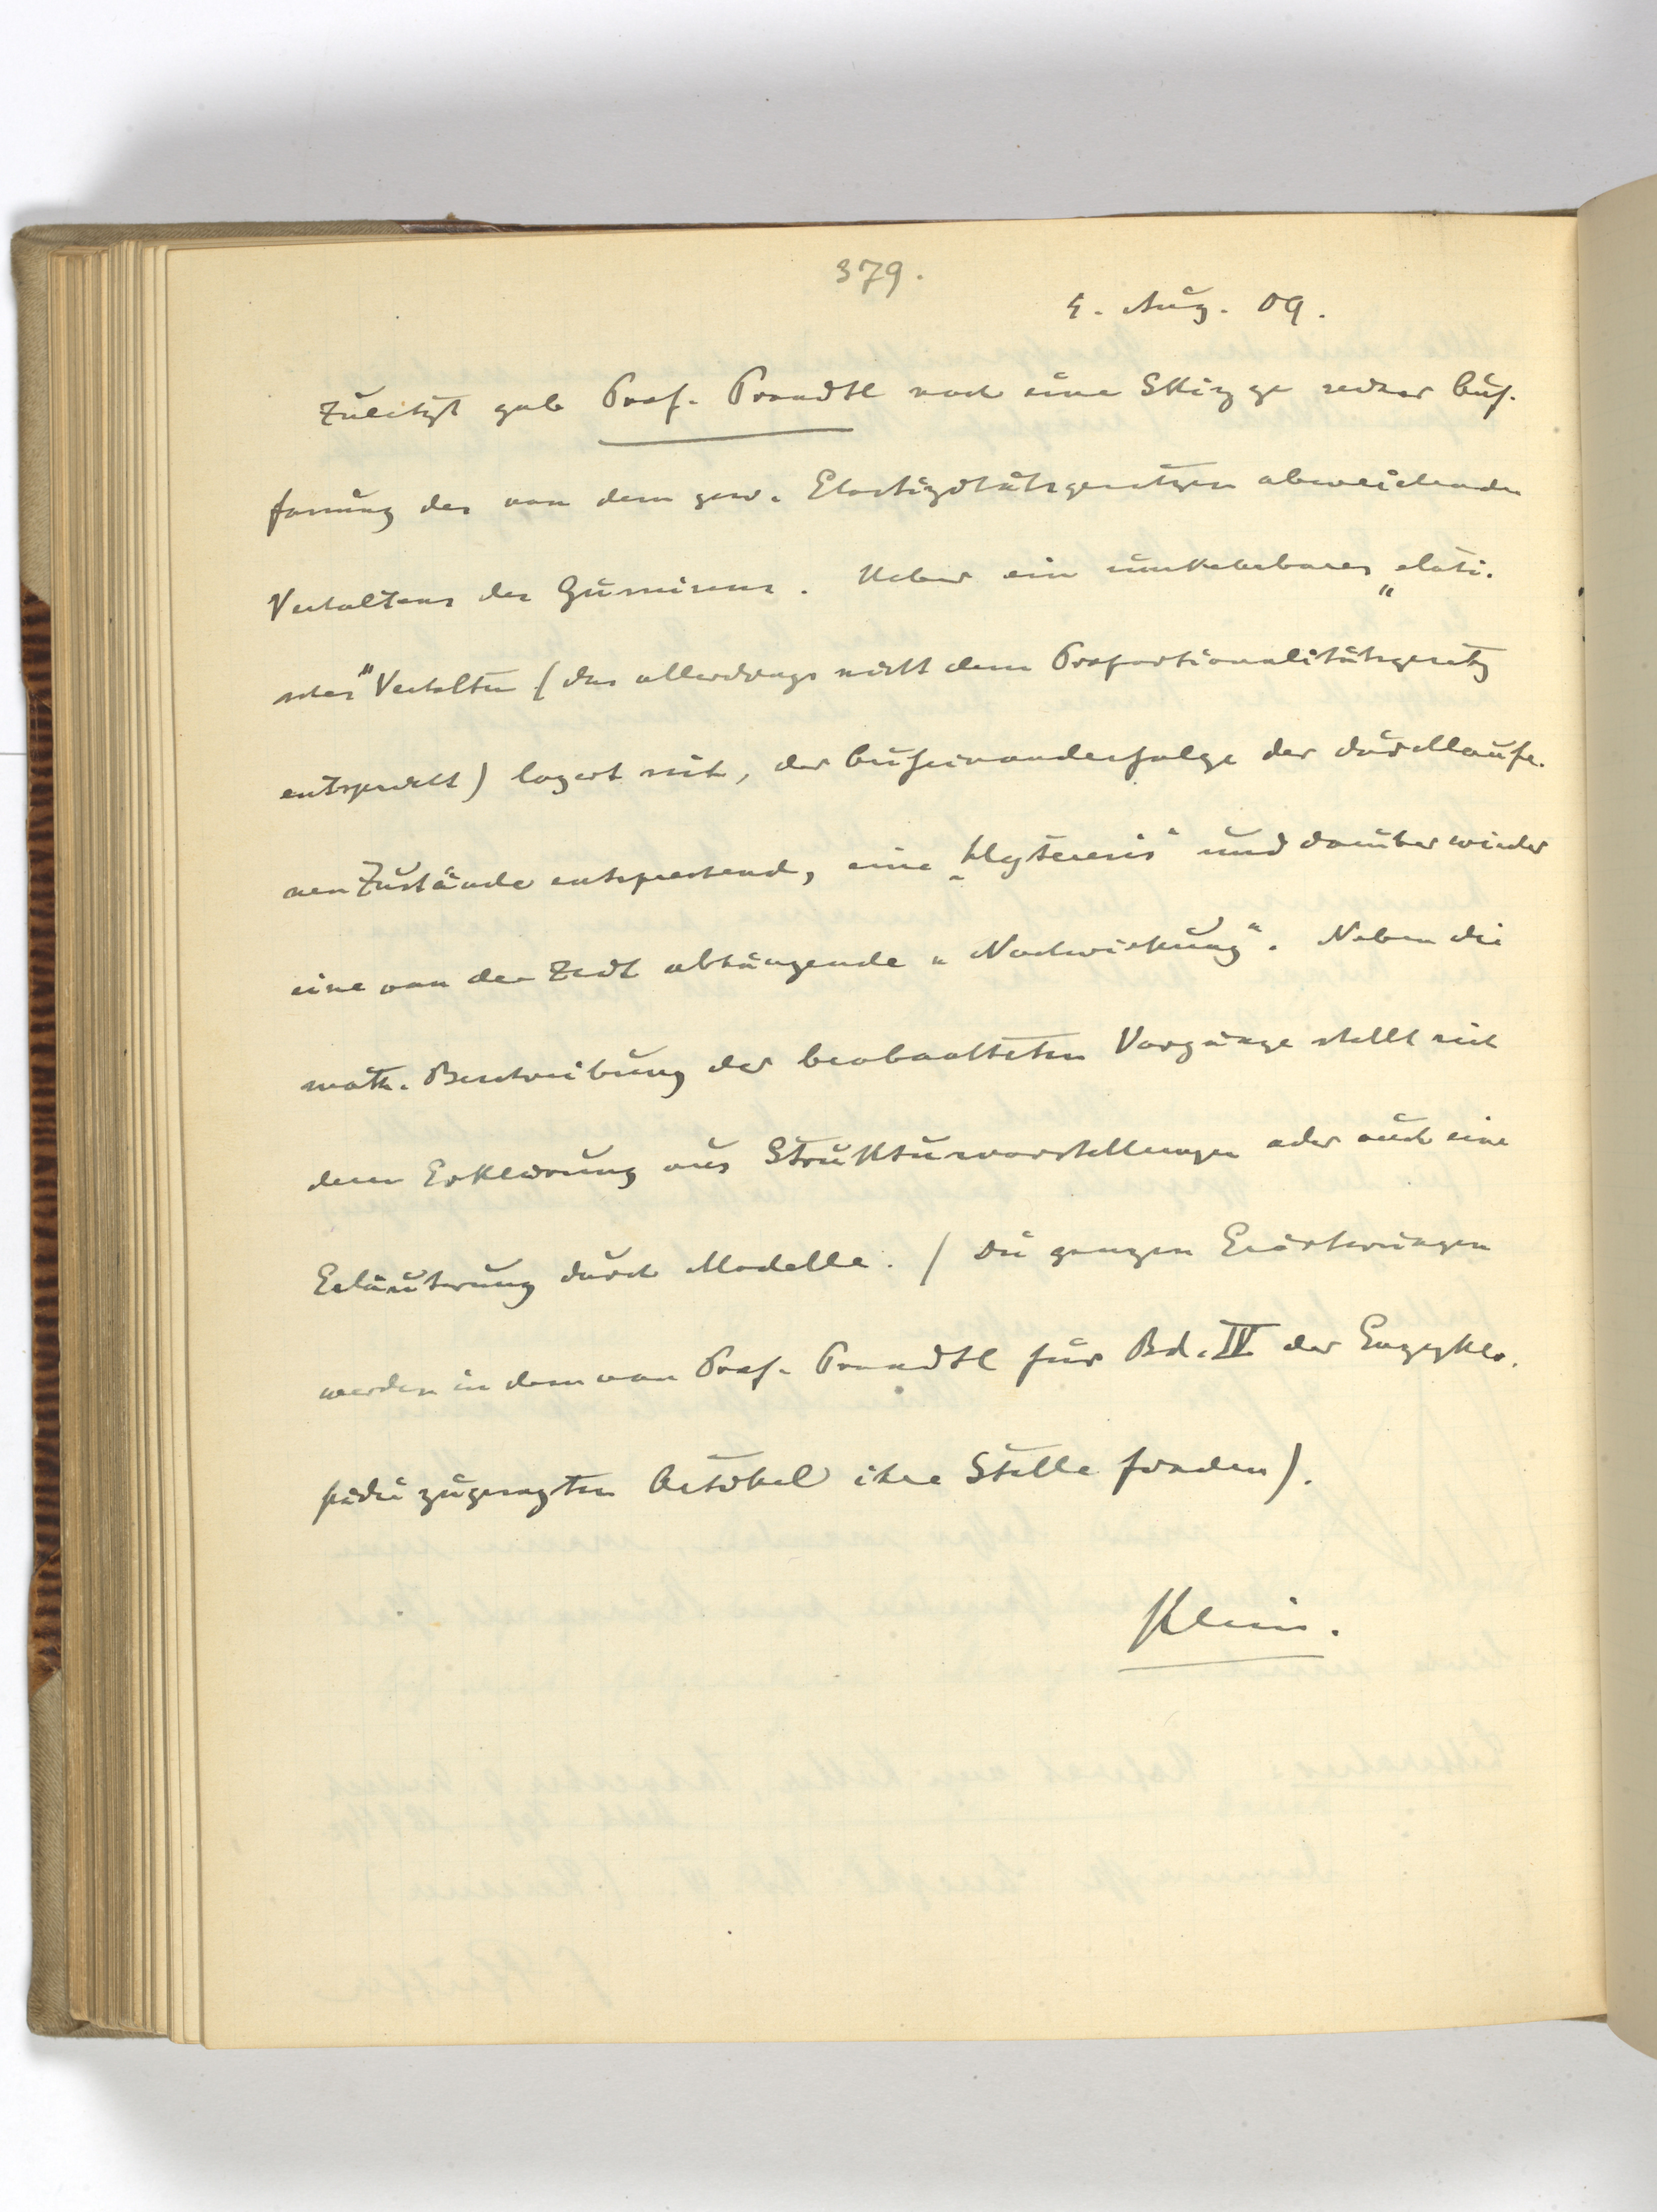 379.
4. Aug. 09.
Zuletzt gab Prof. Prandtl noch eine Skizze seiner Auf-
fassung des von dem gew. Elastizitätsgesetzen abweichenden
Verhaltens des Gummis. Ueber ein umkehrbares „elasti-
sches" Verhalten (das allerdings nicht dem Proportionalitätsgesetz
entspricht) lagert sich, der Aufeinanderfolge der durchlaufe-
nen Zustände entsprechend, eine „Hysteresis" und darüber wieder
eine von der Zeit abhängende „Nachwirkung". Neben die
math. Beschreibung der beobachteten Vorgänge stellt sich
dann Erklärung aus Strukturvorstellungen oder auch eine
Erläuterung durch Modelle. (Die ganzen Erörterungen
werden in dem von Prof. Prandtl für Bd. IV der Enzyklo-
pädie zugesagten Artikel ihre Stelle finden).
Klein.